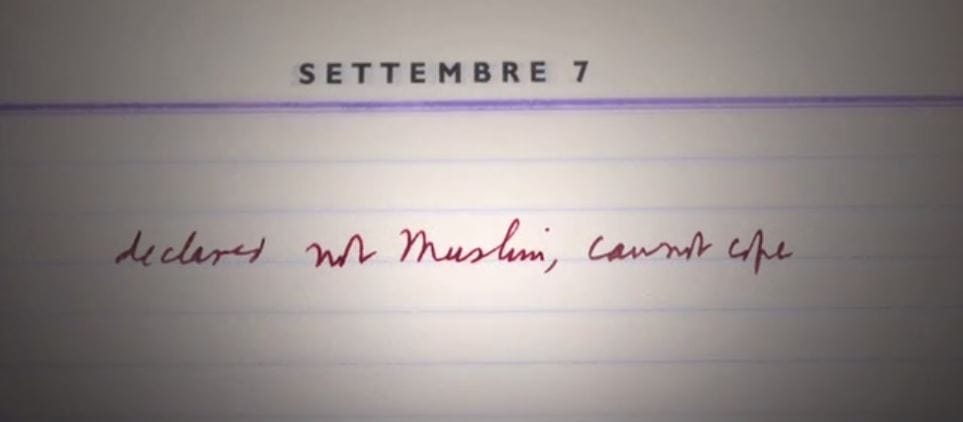 SETTEMBRE 7
declares not Muslim, cannot cope